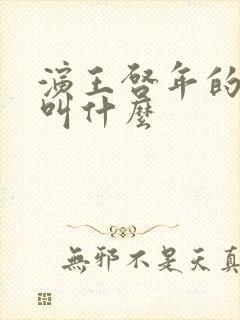 演王啓年的
叫什麼
無邪不是天真